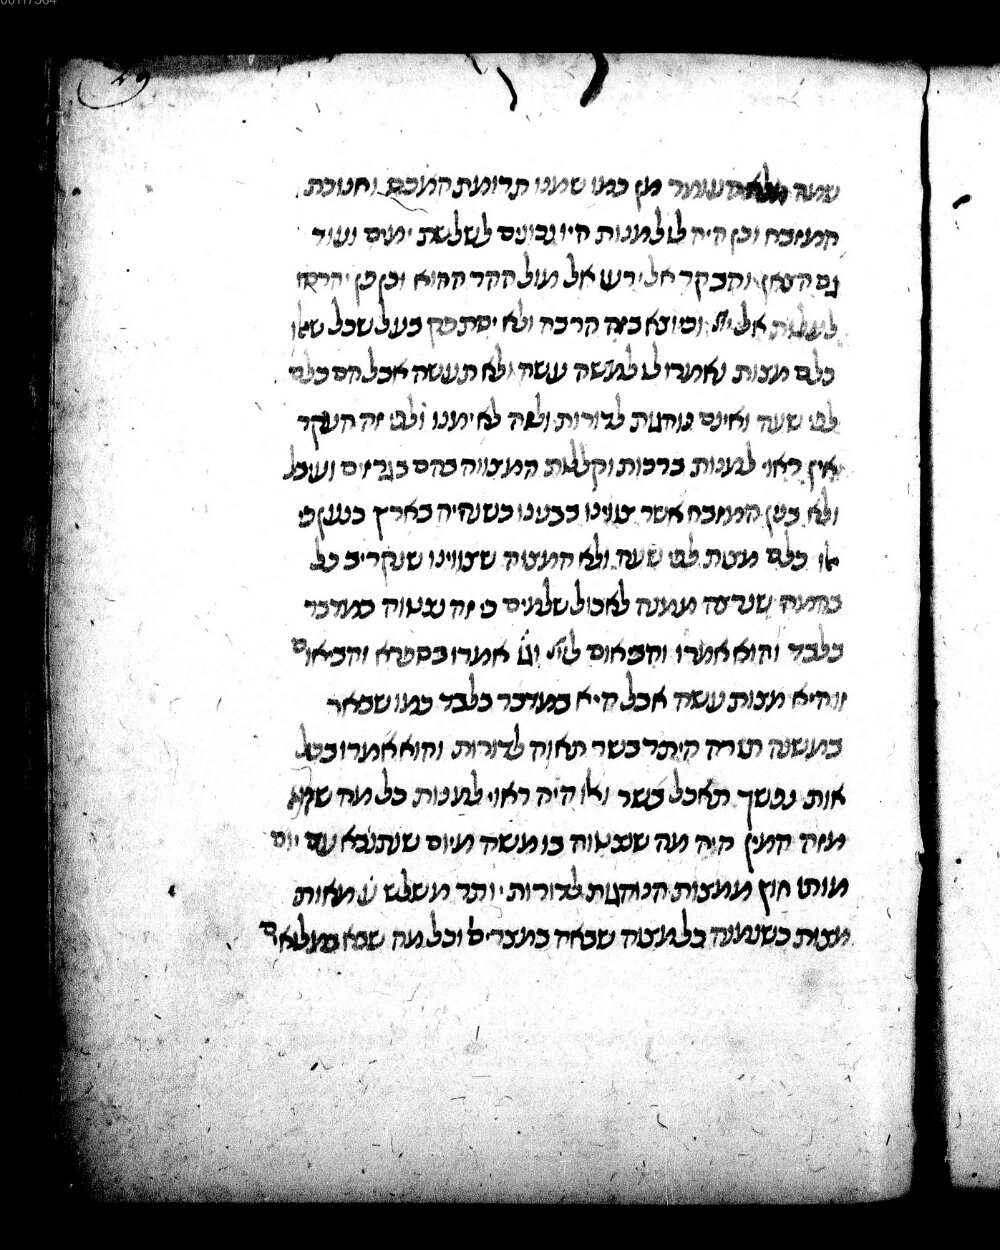 שעה מלא העומר מן כמו שמנו תרומת המכס וחנוכת
המזבח וכן היה לו למנות היו נכונים לשלשת ימים ועוד
גם הצאן והבקר אל ירעו אל מול ההר ההוא וכן פן יהרסו
לעלות אל יי׳ וכיוצא בזה הרבה ולא יסתפק בעל שכל שאלו
כלם מצות נאמרו לו למשה עשה ולא תעשה אבל הם כלם
לפי שעה ואינם נוהגות לדורות ולזה לא ימנו ולפי זה העקר
אין ראוי למנות ברכות וקללות המצווה בהם בגריזים ועיבל
ולא בנין המזבח אשר צוינו בבנינו כשנהיה בארץ כנען כי
אלו כלם מצות לפי שעה ולא המצוה שצווינו שנקריב כל
בהמה שנרצה ממנה לאכול שלמים כי זה נצטוה במדבר
בלבד והוא אמרו והביאום ליי׳ ול׳ אמרו בספרא והביאום
זו היא מצות עשה אבל היא במדבר בלבד כמו שבאר
במשנה תורה היתר בשר תאוה לדורות והוא אמרו בכל
אות נפשך תאכל בשר ואלו היה ראוי למנות כל מה שהוא
מזה המין היה מה שנצטוה בו משה מיום שנתנבא עד יום
מותו חוץ ממצות הנוהגות לדורות יותר משלש מאות
מצות כשנמנה כל מצוה שבאה במצרים וכל מה שבא במלואים